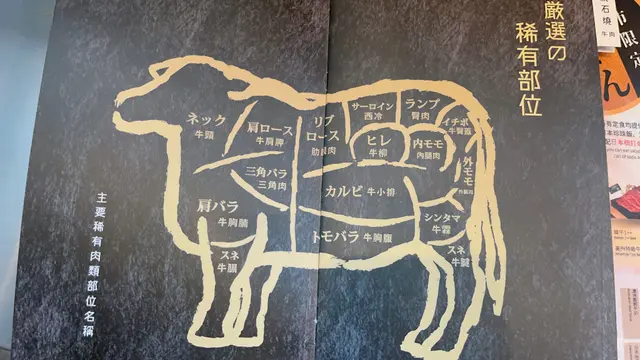 厳選の
稀有部位
ネック
牛頸
肩ロース
牛肩胛
リブ
ロース
サーロイン
西冷
ランプ
臀肉
イチボ
牛臀蓋
ヒレ
牛柳
内モモ
內腿肉
外モモ
三角バラ
三角肉
カルビ 牛小排
肩バラ
牛胸腩
トモバラ 牛胸腹
シンタマ
牛霖
スネ
牛腱
スネ
牛腱
主要稀有肉類部位名稱
石燒
牛肉
限定